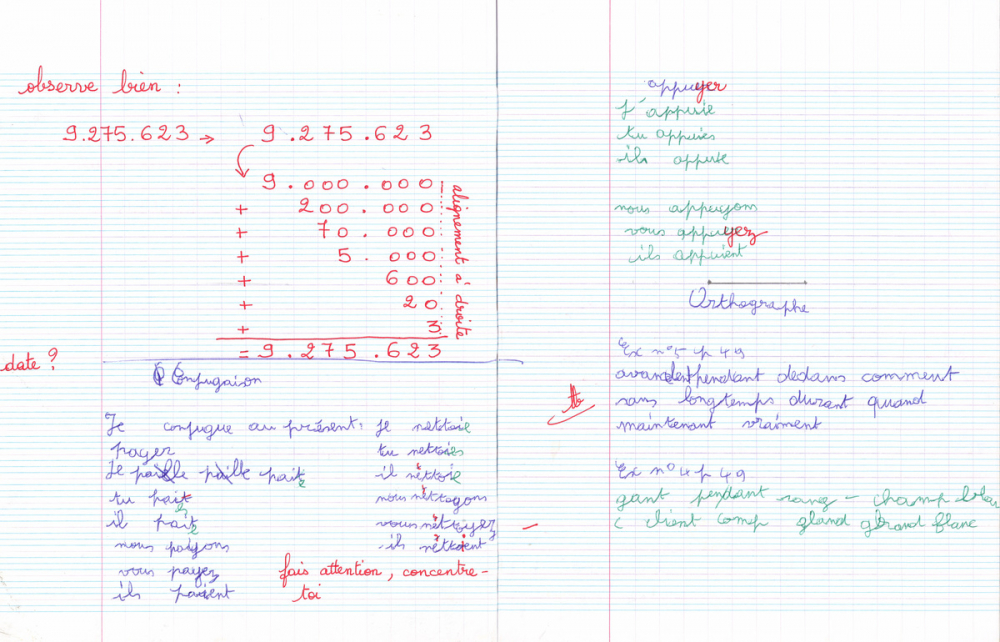 observe bien :
9.275.623 → 9.275.623
9.000.000
+ 200.000
+ 70.000
+ 5.000
+ 600
+ 20
+ 3
= 9.275.623
alignement à droite
date ?
Conjugaison
Je conjugue au présent : je nettoie
payer
tu nettoies
Je paie
il nettoie
tu
nous nettoyons
il
vous nettoyez
nous payons
ils nettoient
vous payez
ils paient
fais attention, concentre-
toi
appuyer
J'appuie
tu appuies
il appuie
nous appuyons
vous appuyez
ils appuient
Orthographe
Ex n°5 p 49
avant pendant dedans comment
sans longtemps durant quand
maintenant vraiment
tb
Ex n°4 p 49
gant pendant rang - champ
client camp gland grand flanc